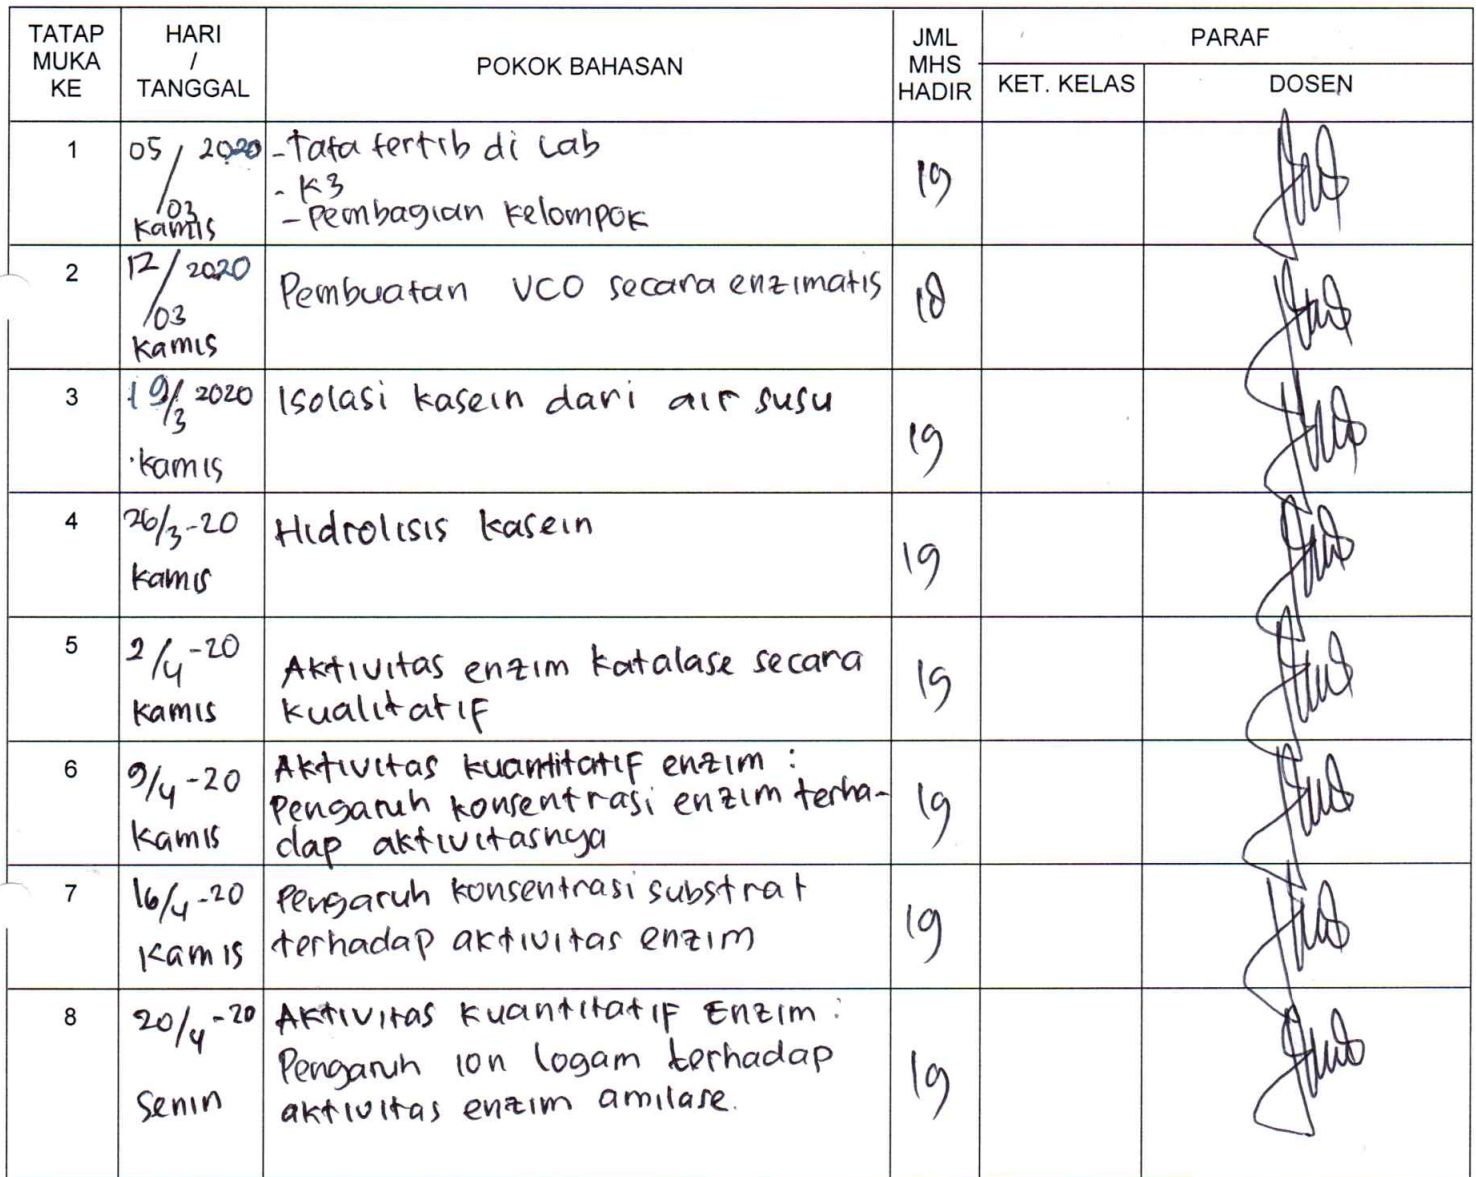 TATAP MUKA KE
HARI / TANGGAL
POKOK BAHASAN
JML MHS HADIR
PARAF
KET. KELAS
DOSEN
1
05/03 2020
Kamis
- Tata tertib di Lab
- K3
- Pembagian kelompok
19
2
12/03 2020
Kamis
Pembuatan VCO secara enzimatis
18
3
19/3 2020
Kamis
Isolasi kasein dari air susu
19
4
26/3-20
Kamis
Hidrolisis kasein
19
5
2/4-20
Kamis
Aktivitas enzim katalase secara
kualitatif
19
6
9/4-20
Kamis
Aktivitas kuantitatif enzim :
Pengaruh konsentrasi enzim terha-
dap aktivitasnya
19
7
16/4-20
Kamis
Pengaruh konsentrasi substrat
terhadap aktivitas enzim
19
8
20/4-20
Senin
Aktivitas Kuantitatif Enzim :
Pengaruh ion logam terhadap
aktivitas enzim amilase.
19